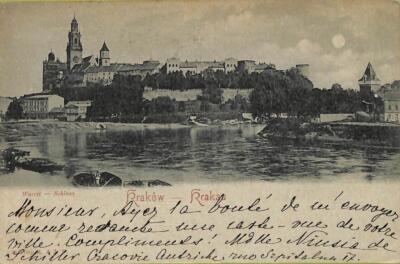 Wawel — Schloss
Kraków — Krakau
Monsieur, Ayez la bonté de m'envoyez
comme revanche une carte-vue de votre
ville. Compliments! Mdlle Niusia de
Schiller Cracovie Autriche rue Szpitalna 17.